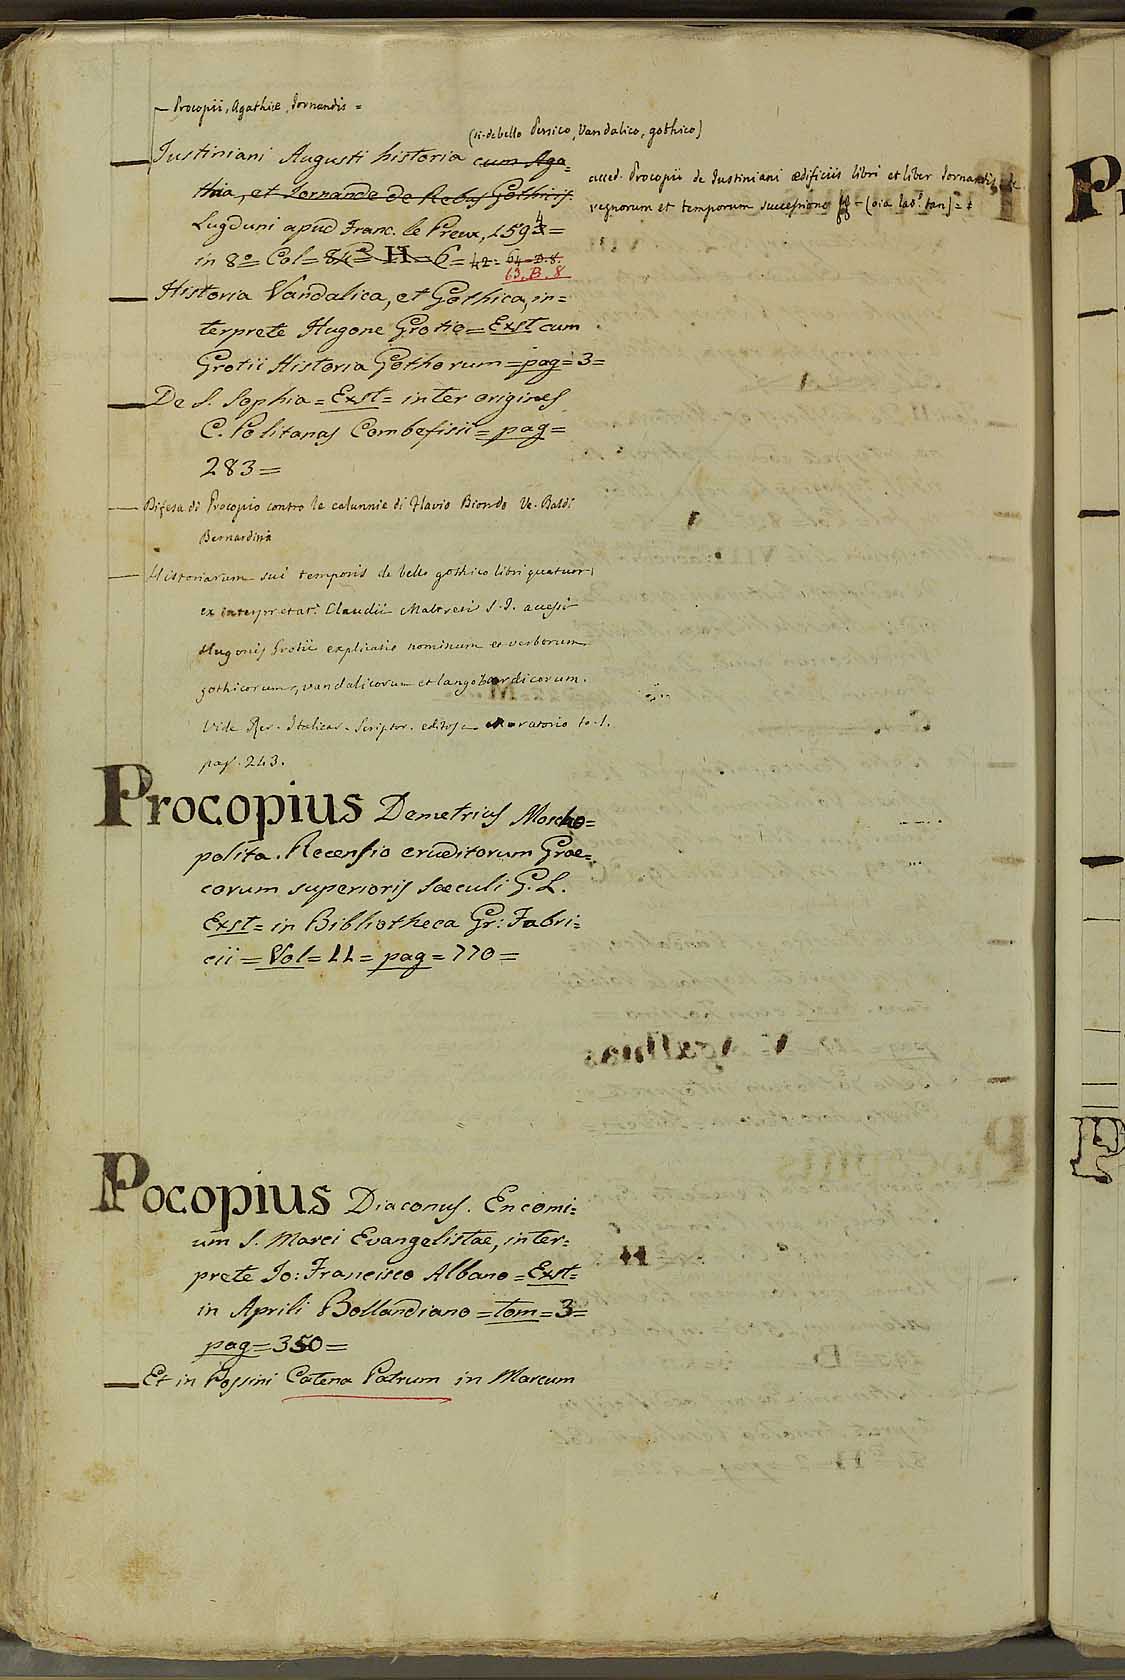 — Procopii, Agathiæ, Jornandis =
(si. de bello Persico, Vandalico, gothico)
— Justiniani Augusti historia cum Aga=
thia, et Jornande de Rebus Gothicis.
acced. Procopii de Justiniani ædificiis libri et liber Jornandis de
regnorum et temporum successione
Lugduni apud Franc. le Preux, 1594 =
in 8º Col = H = 6 = 42 = 64 = D. 8.
63. B. 8
— Historia Vandalica, et Gothica, in=
terprete Hugone Grotio = Exst cum
Grotii Historia Gothorum = pag = 3 =
— De S. Sophia = Exst = inter origines
C. Politanas Combefisii = pag =
283 =
— Difesa di Procopio contro le calunnie di Flavio Biondo Ve. Baldi
Bernardino
— Historiarum sui temporis de bello gothico libri quatuor
ex interpretat. Claudii Maltreti S. J. accessit
Hugonis Grotii explicatio nominum et verborum
gothicorum, vandalicorum et langobardicorum.
Vide Rer. Italicar. Scriptor. editos a Muratorio to. 1.
pag. 243.
Procopius Demetrius Moscho=
polita. Recensio eruditorum Grae=
corum superioris saeculi G. L.
Exst = in Bibliotheca Gr: Fabri=
cii = Vol = 11 = pag = 770 =
Pocopius Diaconus. Encomi=
um S. Marci Evangelistae, inter=
prete Jo: Francisco Albano = Exst =
in Aprili Bollandiano = tom = 3 =
pag = 350 =
— Et in Possini Catena Patrum in Marcum